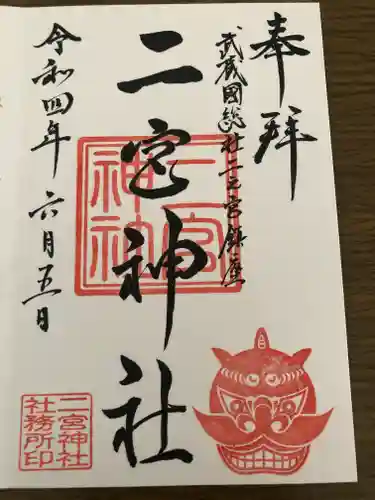 奉拝
武蔵國総社二之宮鎮座
二宮神社
令和四年 六月五日
二宮
神社
二宮神社
社務所印